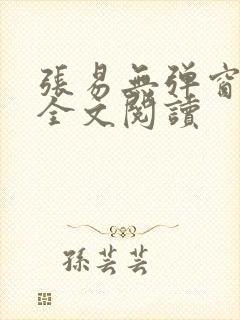 張易無弹窗
全文閱讀
孫芸芸